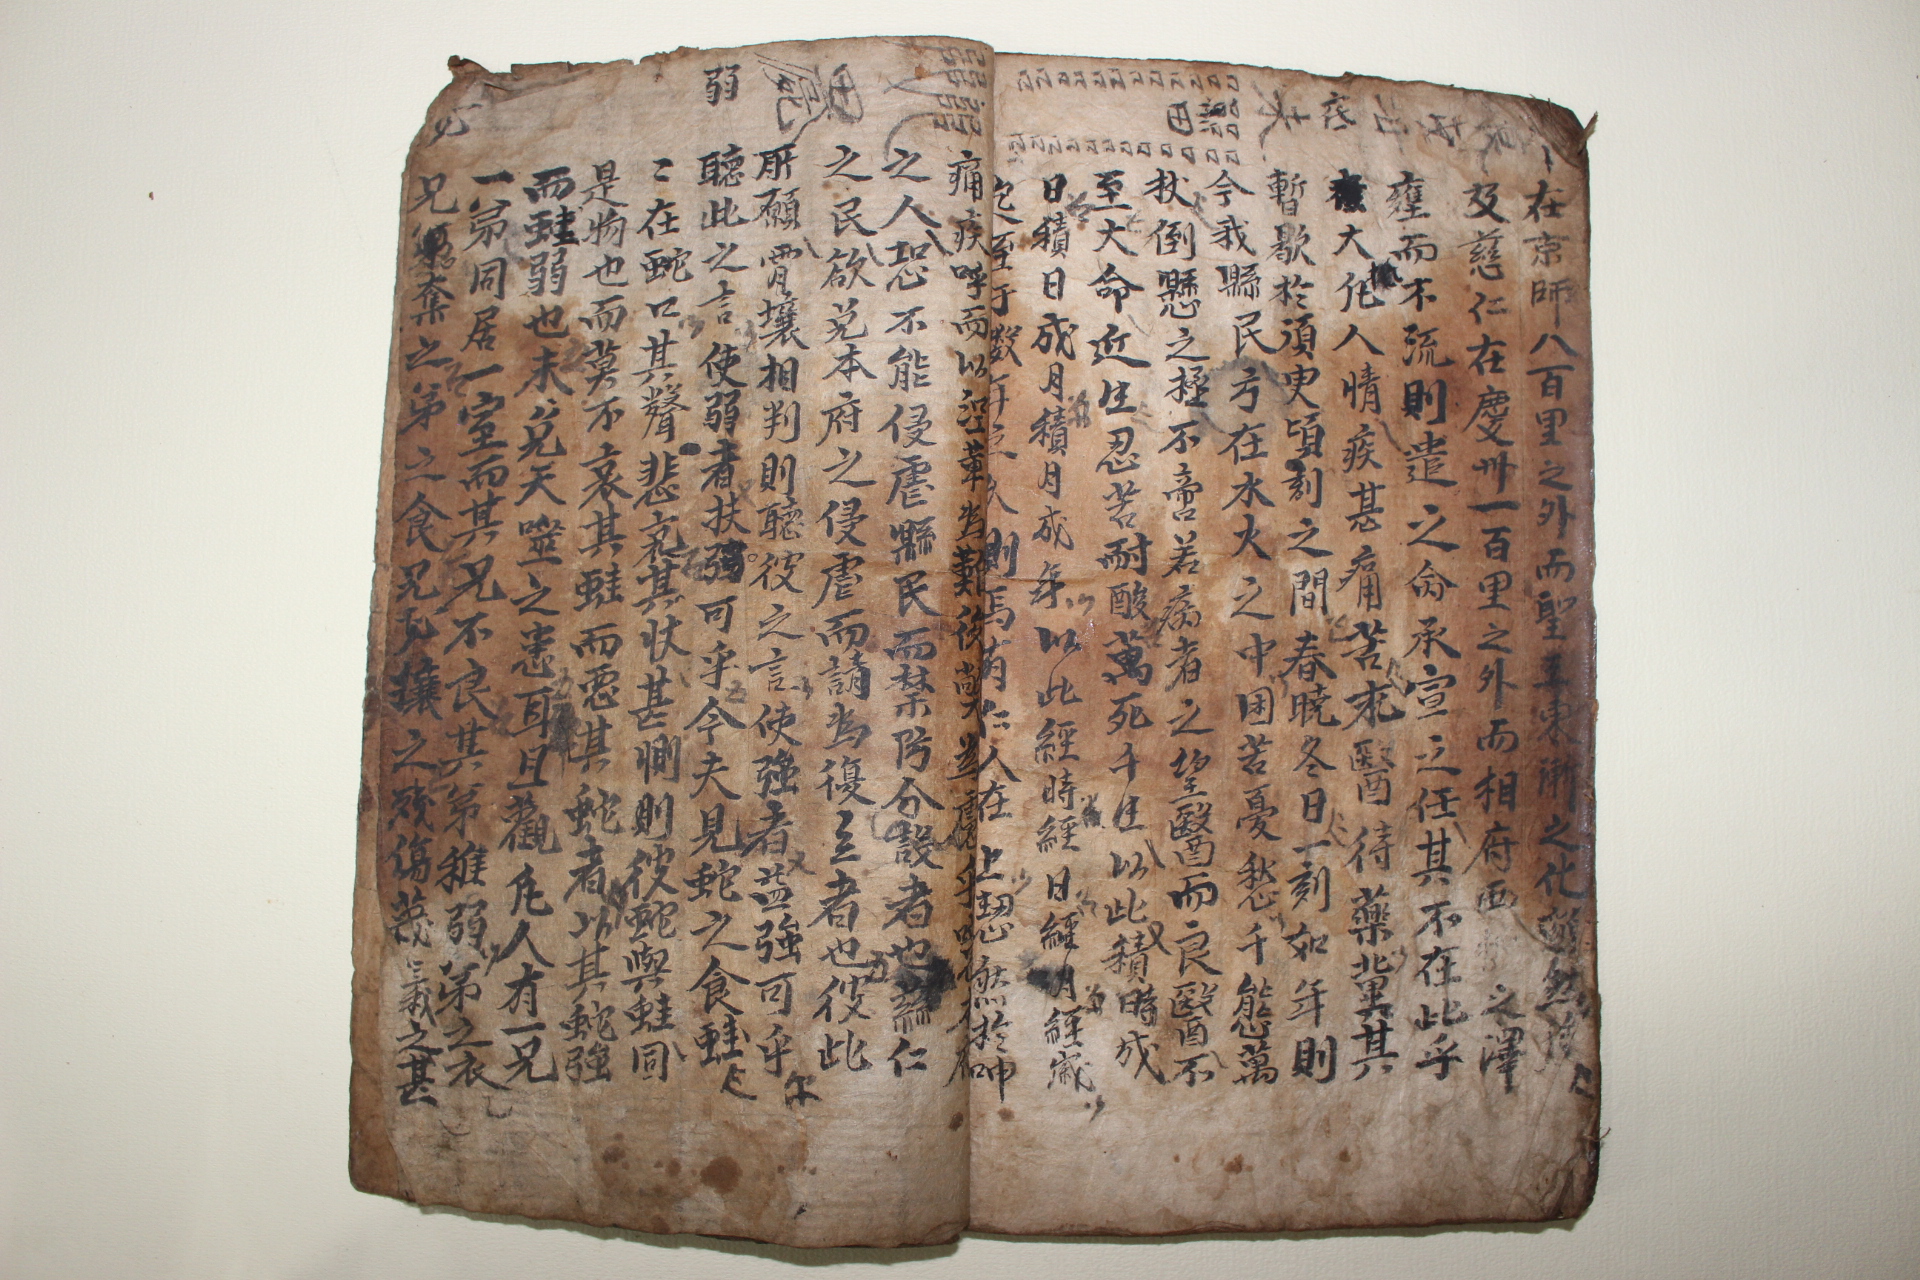 在京師八百里之外而聖王東漸之化
及慈仁在慶州一百里之外而相府 之澤
壅而不流則遣之命承宣之任其不在此乎
大凡人情疾甚痛苦求醫待藥冀其
暫歇於須臾頃刻之間春曉冬日一刻如年則
今我縣民方在水火之中困苦憂愁千態萬
狀倒懸之極不啻若病者之望醫而良醫不
至大命近止忍苦耐酸萬死千生以此積時成
日積日成月積月成年以此經時經日經月經歲
迄至于数年之久則焉有仁人在上恝然於呻
痛疾呼而以
之人恐不能侵虐縣民而禁防分設者也慈仁
之民欲免本府之侵虐而請爲復立者也彼此
所願胥壤相判則聽彼之言使強者益強可乎
聽此之言使弱者扶弱可乎今夫見蛇之食蛙
蛙在蛇口其聲悲哀其狀甚惻則彼蛇與蛙同
是物也而莫不哀其蛙而惡其蛇者以其蛇強
而蛙弱也未免天噬之患耳且觀凡人有一兄
一弟同居一室而其兄不良其弟稚弱弟之衣
兄奪之弟之食兄攘之殘傷蔑義之甚
弱
田
田